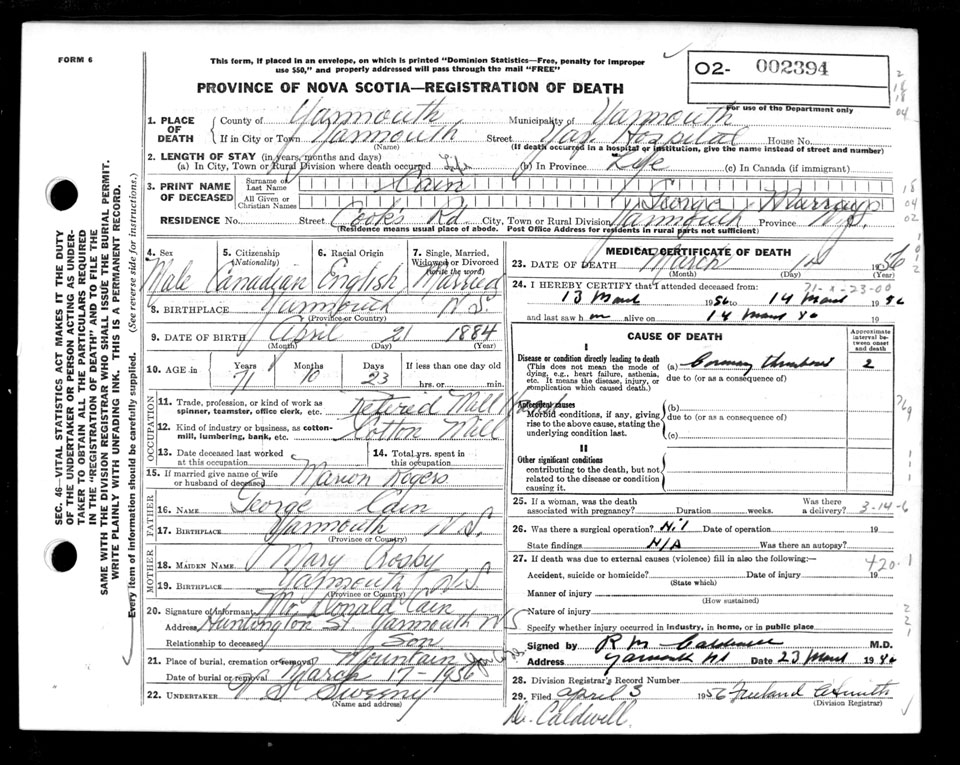 FORM 6
This form, if placed in an envelope, on which is printed "Dominion Statistics—Free, penalty for improper
use $50," and properly addressed will pass through the mail "FREE"
02- 002394
PROVINCE OF NOVA SCOTIA—REGISTRATION OF DEATH
For use of the Department only
1. PLACE OF DEATH
County of Yarmouth Municipality of Yarmouth
If in City or Town Yarmouth Street Yar. Hospital House No.
(Name) (If death occurred in a hospital or institution, give the name instead of street and number)
2. LENGTH OF STAY (in years, months and days)
(a) In City, Town or Rural Division where death occurred Life (b) In Province Life (c) In Canada (if immigrant)
3. PRINT NAME OF DECEASED
Surname or Last Name Cain
All Given or Christian Names George Murray
RESIDENCE No. Street Cooks Rd City, Town or Rural Division Yarmouth Province N.S.
(Residence means usual place of abode. Post Office Address for residents in rural parts not sufficient)
4. Sex 5. Citizenship (Nationality) 6. Racial Origin 7. Single, Married, Widowed or Divorced (write the word)
Male Canadian English Married
8. BIRTHPLACE Yarmouth N.S.
(Province or Country)
9. DATE OF BIRTH April 21 1884
(Month) (Day) (Year)
10. AGE in Years Months Days If less than one day old
71 10 23 hrs. or min.
OCCUPATION
11. Trade, profession, or kind of work as spinner, teamster, office clerk, etc. Retired Mill
12. Kind of industry or business, as cotton-mill, lumbering, bank, etc. Cotton Mill
13. Date deceased last worked at this occupation 14. Total yrs. spent in this occupation
15. If married give name of wife or husband of deceased Marion Rogers
FATHER
16. NAME George Cain
17. BIRTHPLACE Yarmouth N.S.
(Province or Country)
MOTHER
18. MAIDEN NAME Mary Crosby
19. BIRTHPLACE Yarmouth N.S.
(Province or Country)
20. Signature of informant Mr Donald Cain
Address Huntington St Yarmouth N S
Relationship to deceased Son
21. Place of burial, cremation or removal Mountain
Date of burial or removal March 17-1956
22. UNDERTAKER V S Sweeny
(Name and address)
SEC. 46—VITAL STATISTICS ACT MAKES IT THE DUTY
OF THE UNDERTAKER OR PERSON ACTING AS UNDER-
TAKER TO OBTAIN ALL THE PARTICULARS REQUIRED
IN THE "REGISTRATION OF DEATH" AND TO FILE THE
SAME WITH THE DIVISION REGISTRAR WHO SHALL ISSUE THE BURIAL PERMIT.
WRITE PLAINLY WITH UNFADING INK. THIS IS A PERMANENT RECORD.
Every item of information should be carefully supplied. (See reverse side for instructions.)
MEDICAL CERTIFICATE OF DEATH
23. DATE OF DEATH March 14 1956
(Month) (Day) (Year)
71-x-23-00
24. I HEREBY CERTIFY that I attended deceased from:
13 March 1956 to 14 March 1956
and last saw h m alive on 14 March 56 19
CAUSE OF DEATH
Approximate interval between onset and death
I
Disease or condition directly leading to death
(This does not mean the mode of dying, e.g., heart failure, asthenia, etc. It means the disease, injury, or complication which caused death.)
(a) Coronary Thrombosis 2
due to (or as a consequence of)
Antecedent causes
Morbid conditions, if any, giving rise to the above cause, stating the underlying condition last.
(b)
due to (or as a consequence of)
(c)
II
Other significant conditions
contributing to the death, but not related to the disease or condition causing it.
25. If a woman, was the death associated with pregnancy? Duration weeks. Was there a delivery? 3-14-6
26. Was there a surgical operation? Nil Date of operation 19
State findings N/A Was there an autopsy?
27. If death was due to external causes (violence) fill in also the following:— 420.1
Accident, suicide or homicide? Date of injury 19
(State which)
Manner of injury
(How sustained)
Nature of injury
Specify whether injury occurred in industry, in home, or in public place
Signed by R M Caldwell M.D.
Address Yarmouth NS Date 23 March 1956
28. Division Registrar's Record Number
29. Filed April 3 1956 Freeland C Smith
(Division Registrar)
Dr. Caldwell.